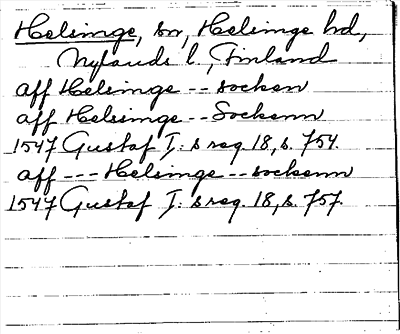 Helsinge, sn, Helsinge hd,
Nylands l, Finland
aff Helsinge -- socken
aff Helsinge -- Sockenn
1547 Gustaf I: s reg. 18, s. 754.
aff --- Helsinge -- sockenn
1547 Gustaf I: s reg. 18, s. 757.